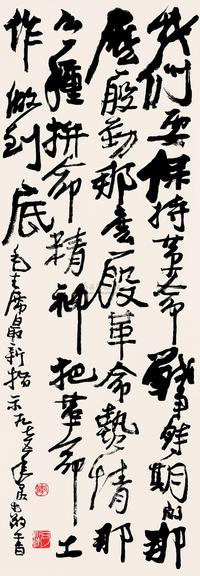 我们要保持革命戰争時期的那
麼一股勁那麼一股革命熱情那
么一種拼命精神把革命工
作做到底
毛主席最新指示